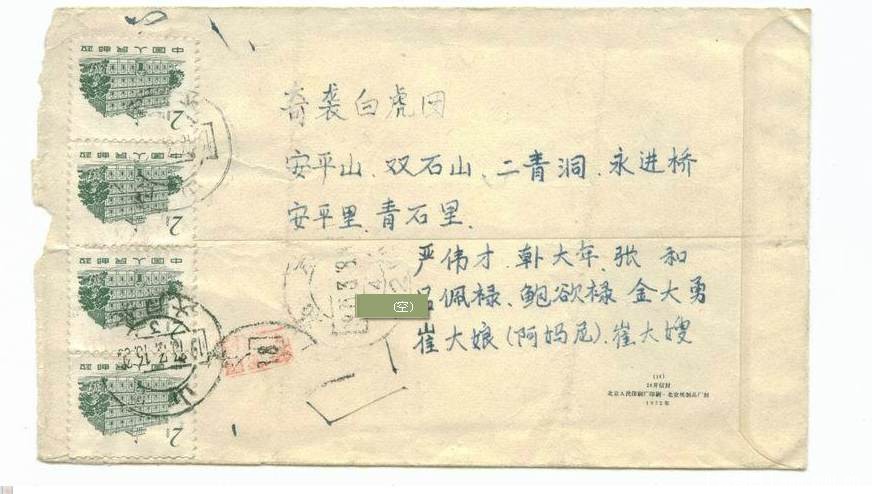 中国人民邮政
2
中国人民邮政
2
中国人民邮政
2
2
奇袭白虎团
安平山、双石山、二青洞、永进桥
安平里、青石里、
严伟才、韩大年、张 和
吕佩禄、鲍欲禄 金大勇
(空)
崔大娘(阿妈尼)、崔大嫂
(14)
24开信封
北京人民印刷厂印刷·北京纸制品厂封
1972年